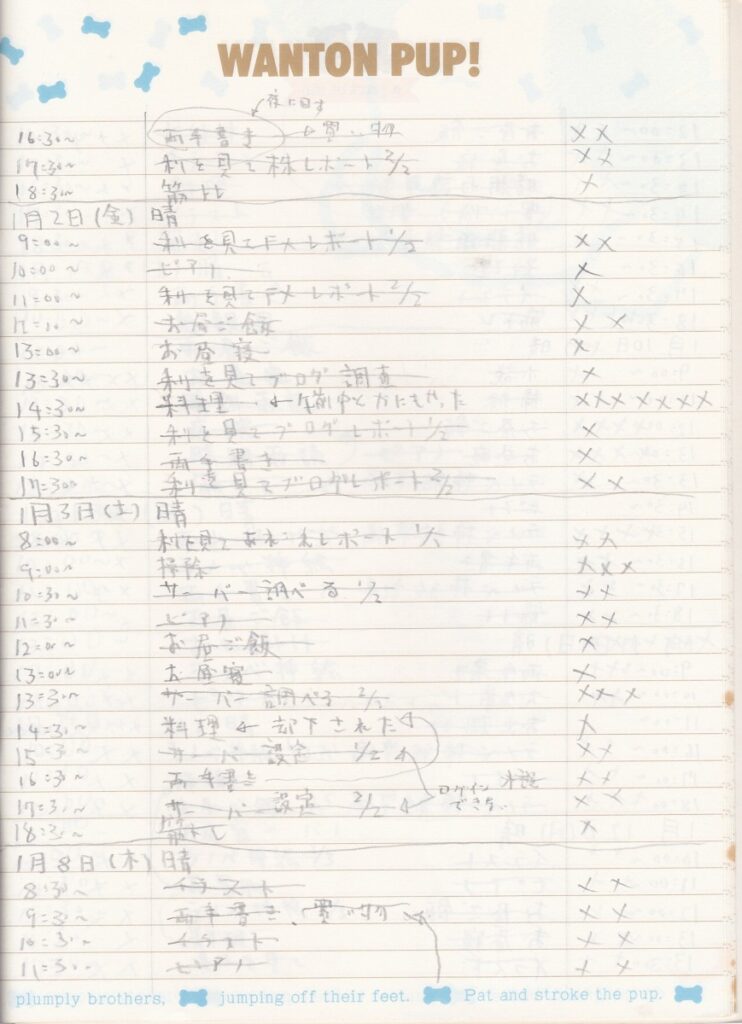 WANTON PUP!
夜に回す
16:30~ 両手書き ←買い物 ××
17:30~ 利を見て株レポート 2/2 ××
18:30~ 筋トレ ×
1月2日(金) 晴
9:00~ 利を見てFXレポート 1/2 ××
10:00~ ピアノ ×
11:00~ 利を見てFXレポート 2/2 ×
お昼ご飯 × ×
13:00~ お昼寝 ×
13:30~ 利を見てブログ調査 ×
14:30~ 料理 ×××××××
15:30~ 利を見てブログレポート 1/2 ×
16:30~ 両手書き ×
17:30~ 利を見てブログレポート 2/2 × ×
1月3日(土) 晴
8:00~ 利を見て レポート ××
9:00~ 掃除 ×××
10:30~ サーバー調べる 1/2 ××
11:30~ ピアノ ××
12:00~ お昼ご飯 ×
13:00~ お昼寝 ×
13:30~ サーバー調べる 2/2 ×××
14:30~ 料理 ← 却下された ×
15:30~ サーバー設定 1/2 ××
16:30~ 両手書き ××
ログイン
できず
17:30~ サーバー設定 2/2 ××
18:30~ 筋トレ ×
1月8日(木) 晴
8:30~ イラスト ××
9:30~ 両手書き、買い物 ××
10:30~ イラスト ××
11:30~ ピアノ ××
plumply brothers, jumping off their feet. Pat and stroke the pup.